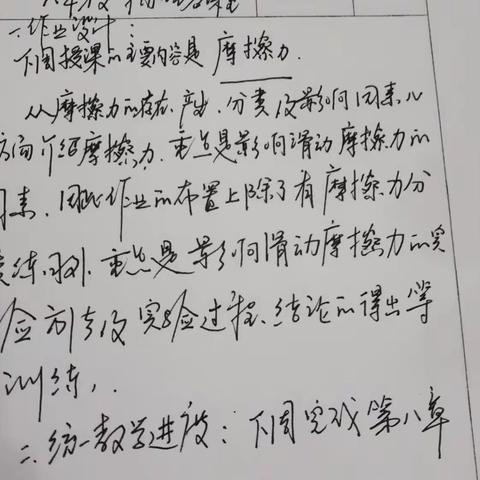 一.作业设计:
下周授课的主要内容是 摩擦力.
从摩擦力的存在、产生、分类及影响因素几
方面介绍摩擦力.重点是影响滑动摩擦力的
因素.因此作业的布置上除了有摩擦力分
类练习外.重点是影响滑动摩擦力的实
验方法及实验过程、结论的得出等
训练,.
二.统一教学进度:下周完成第八章